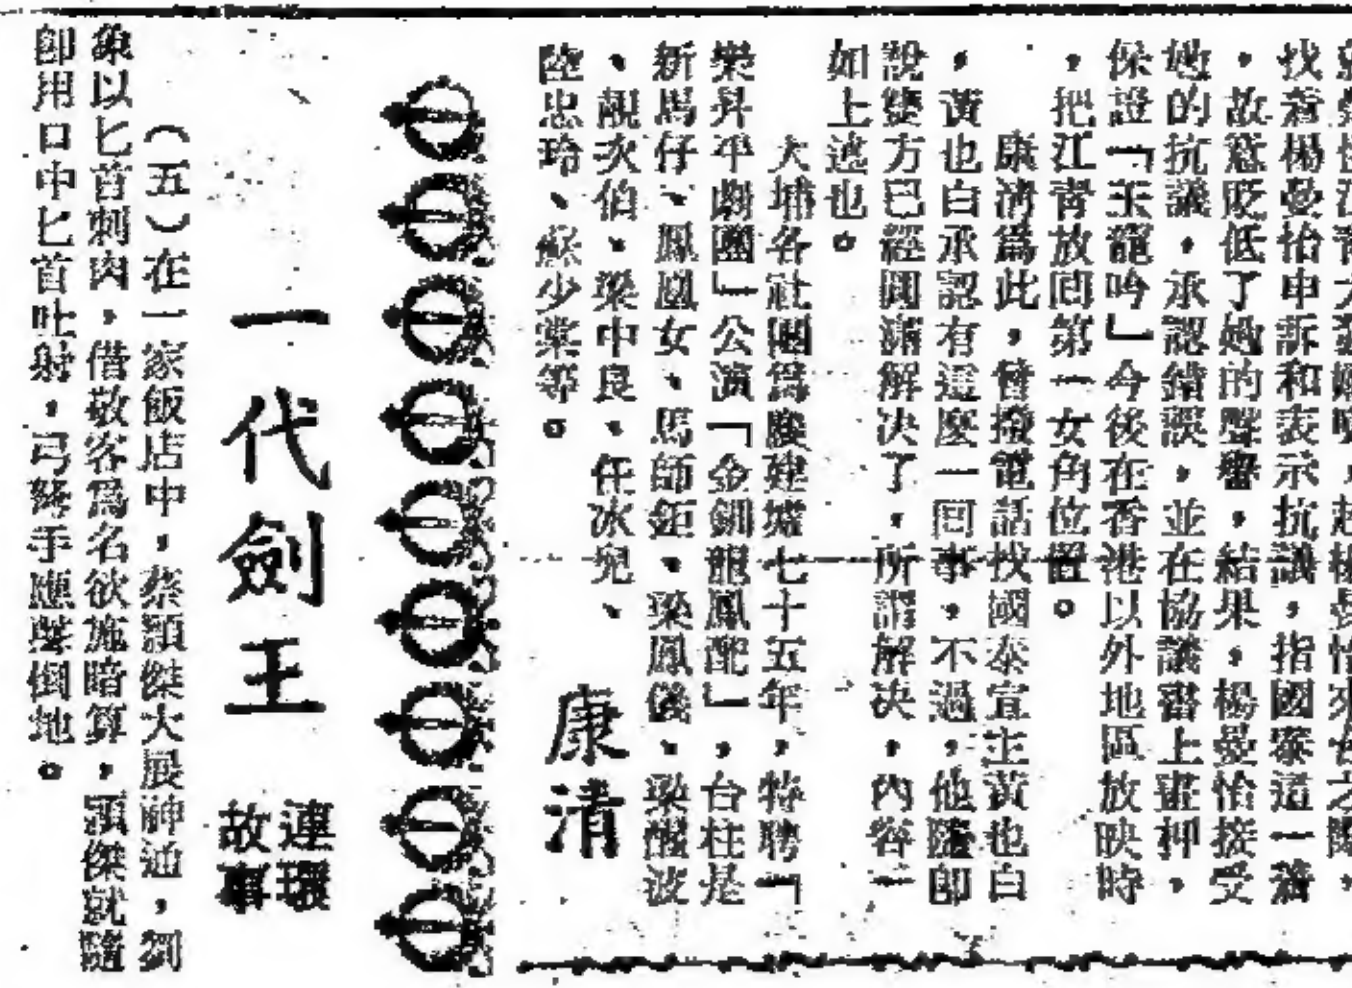 找着楊曼怡申訴和表示抗議，指國泰這一着
，故意貶低了她的聲譽，結果，楊曼怡接受
她的抗議，承認錯誤，並在協議書上畫押，
保證「玉龍吟」今後在香港以外地區放映時
，把江青放回第一女角位置。
康清爲此，曾撥電話找國泰宣主黃也白
，黃也白承認有這麼一回事，不過，他隨即
說雙方已經圓滿解決了，所謂解決，內容一
如上述也。
大埔各社團爲慶建墟七十五年，特聘「
樂昇平劇團」公演「金釧龍鳳配」，台柱是
新馬仔、鳳凰女、馬師鉅、梁鳳儀、梁醒波
、靚次伯、梁中良、任冰兒、
陸忠玲、蘇少棠等。
康清
一代劍王
連環
故事
（五）在一家飯店中，蔡顥傑大展神通，劉
象以匕首刺肉，借敬客爲名欲施暗算，顥傑就隨
卽用口中匕首吐射，弓弩手應聲倒地。